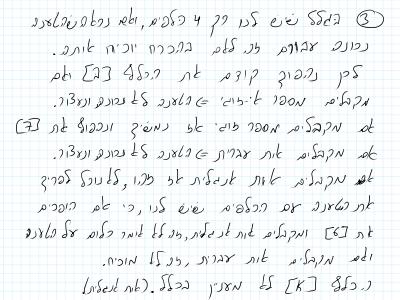 ③ בגלל שיש לנו רק 4 קלפים, ואם נראה שהטענה
נכונה עבורם זה לאם בהכרח יוכיח אותה.
לכן נהפוך קודם את הקלף [ב] ואם
מקבלים מספר אי-זוגי => הטענה לא נכונה ונעצור.
אם מקבלים מספר זוגי אז נמשיך ונהפוך את [7]
אם מקבלים אות עברית => הטענה לא נכונה ונעצור.
אם מקבלים אות אנגלית אז זהו, לא נוכל להפריך
את הטענה עם הקלפים שיש לנו, כי אם הופכים
את [6] ומקבלים אות אנגלית, זה לא אומר כלום על הטענה
ואם מקבלים אות עברית, זה לא מוכיח.
הקלף [K] לא מעניין בכלל. (אות אנגלית)